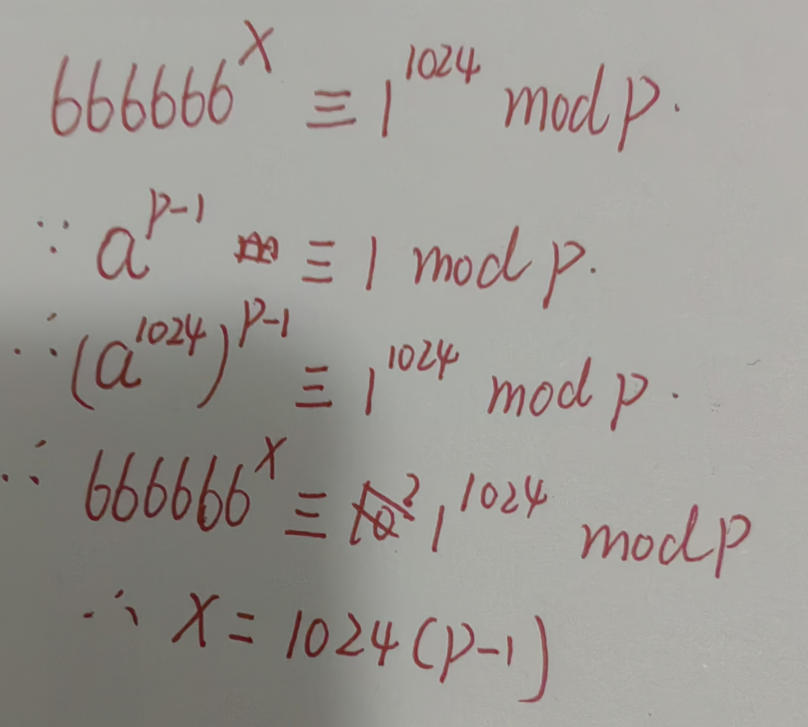 666666^X ≡ 1^1024 mod p.
∵ a^p-1 ≡ 1 mod p.
∴ (a^1024)^p-1 ≡ 1^1024 mod p.
∴ 666666^X ≡ 1^1024 mod p
∴ X = 1024(p-1)